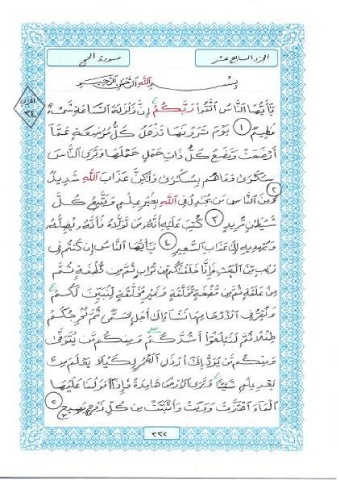 الجزء السابع عشر
سورة الحج
بسم الله الرحمن الرحيم
يا أيها الناس اتقوا ربكم إن زلزلة الساعة شيء
عظيم ١ يوم ترونها تذهل كل مرضعة عما
أرضعت وتضع كل ذات حمل حملها وترى الناس
سكرى وما هم بسكرى ولكن عذاب الله شديد ٢
ومن الناس من يجدل في الله بغير علم ويتبع كل
شيطن مريد ٣ كتب عليه أنه من تولاه فأنه يضله
ويهديه إلى عذاب السعير ٤ يأيها الناس إن كنتم في
ريب من البعث فإنا خلقنكم من تراب ثم من نطفة ثم
من علقة ثم من مضغة مخلقة وغير مخلقة لنبين لكم
ونقر في الأرحام ما نشاء إلى أجل مسمى ثم نخرجكم
طفلا ثم لتبلغوا أشدكم ومنكم من يتوفى
ومنكم من يرد إلى أرذل العمر لكيلا يعلم من
بعد علم شيئا وترى الأرض هامدة فإذا أنزلنا عليها
الماء اهتزت وربت وأنبتت من كل زوج بهيج ٥
٣٣٢